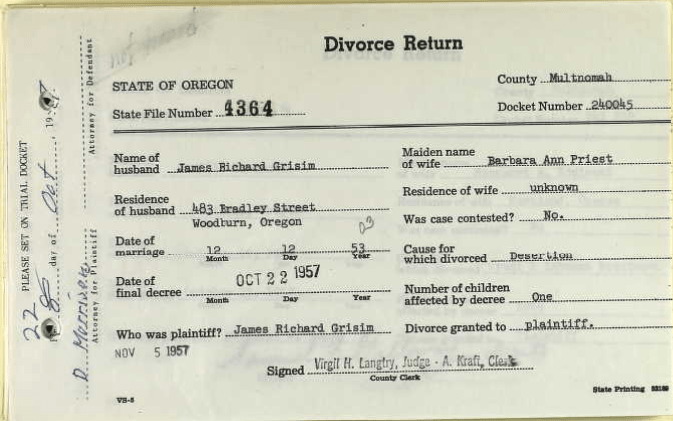 Divorce Return
STATE OF OREGON
County Multnomah
State File Number 4364
Docket Number 240045
Name of husband James Richard Grisim
Maiden name of wife Barbara Ann Priest
Residence of husband 483 Bradley Street
Woodburn, Oregon
Residence of wife unknown
03
Was case contested? No.
Date of marriage 12 12 53
Month Day Year
Cause for which divorced Desertion
Date of final decree OCT 22 1957
Month Day Year
Number of children affected by decree One
Who was plaintiff? James Richard Grisim
Divorce granted to plaintiff.
NOV 5 1957
Signed Virgil H. Langtry, Judge - A. Kraft, Clerk
County Clerk
State Printing
VS-5
PLEASE SET ON TRIAL DOCKET
22 day of Oct, 19
Attorney for Defendant
D.
Attorney for Plaintiff